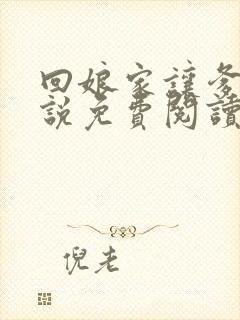 回娘家讓爹
說免費閱讀
倪老